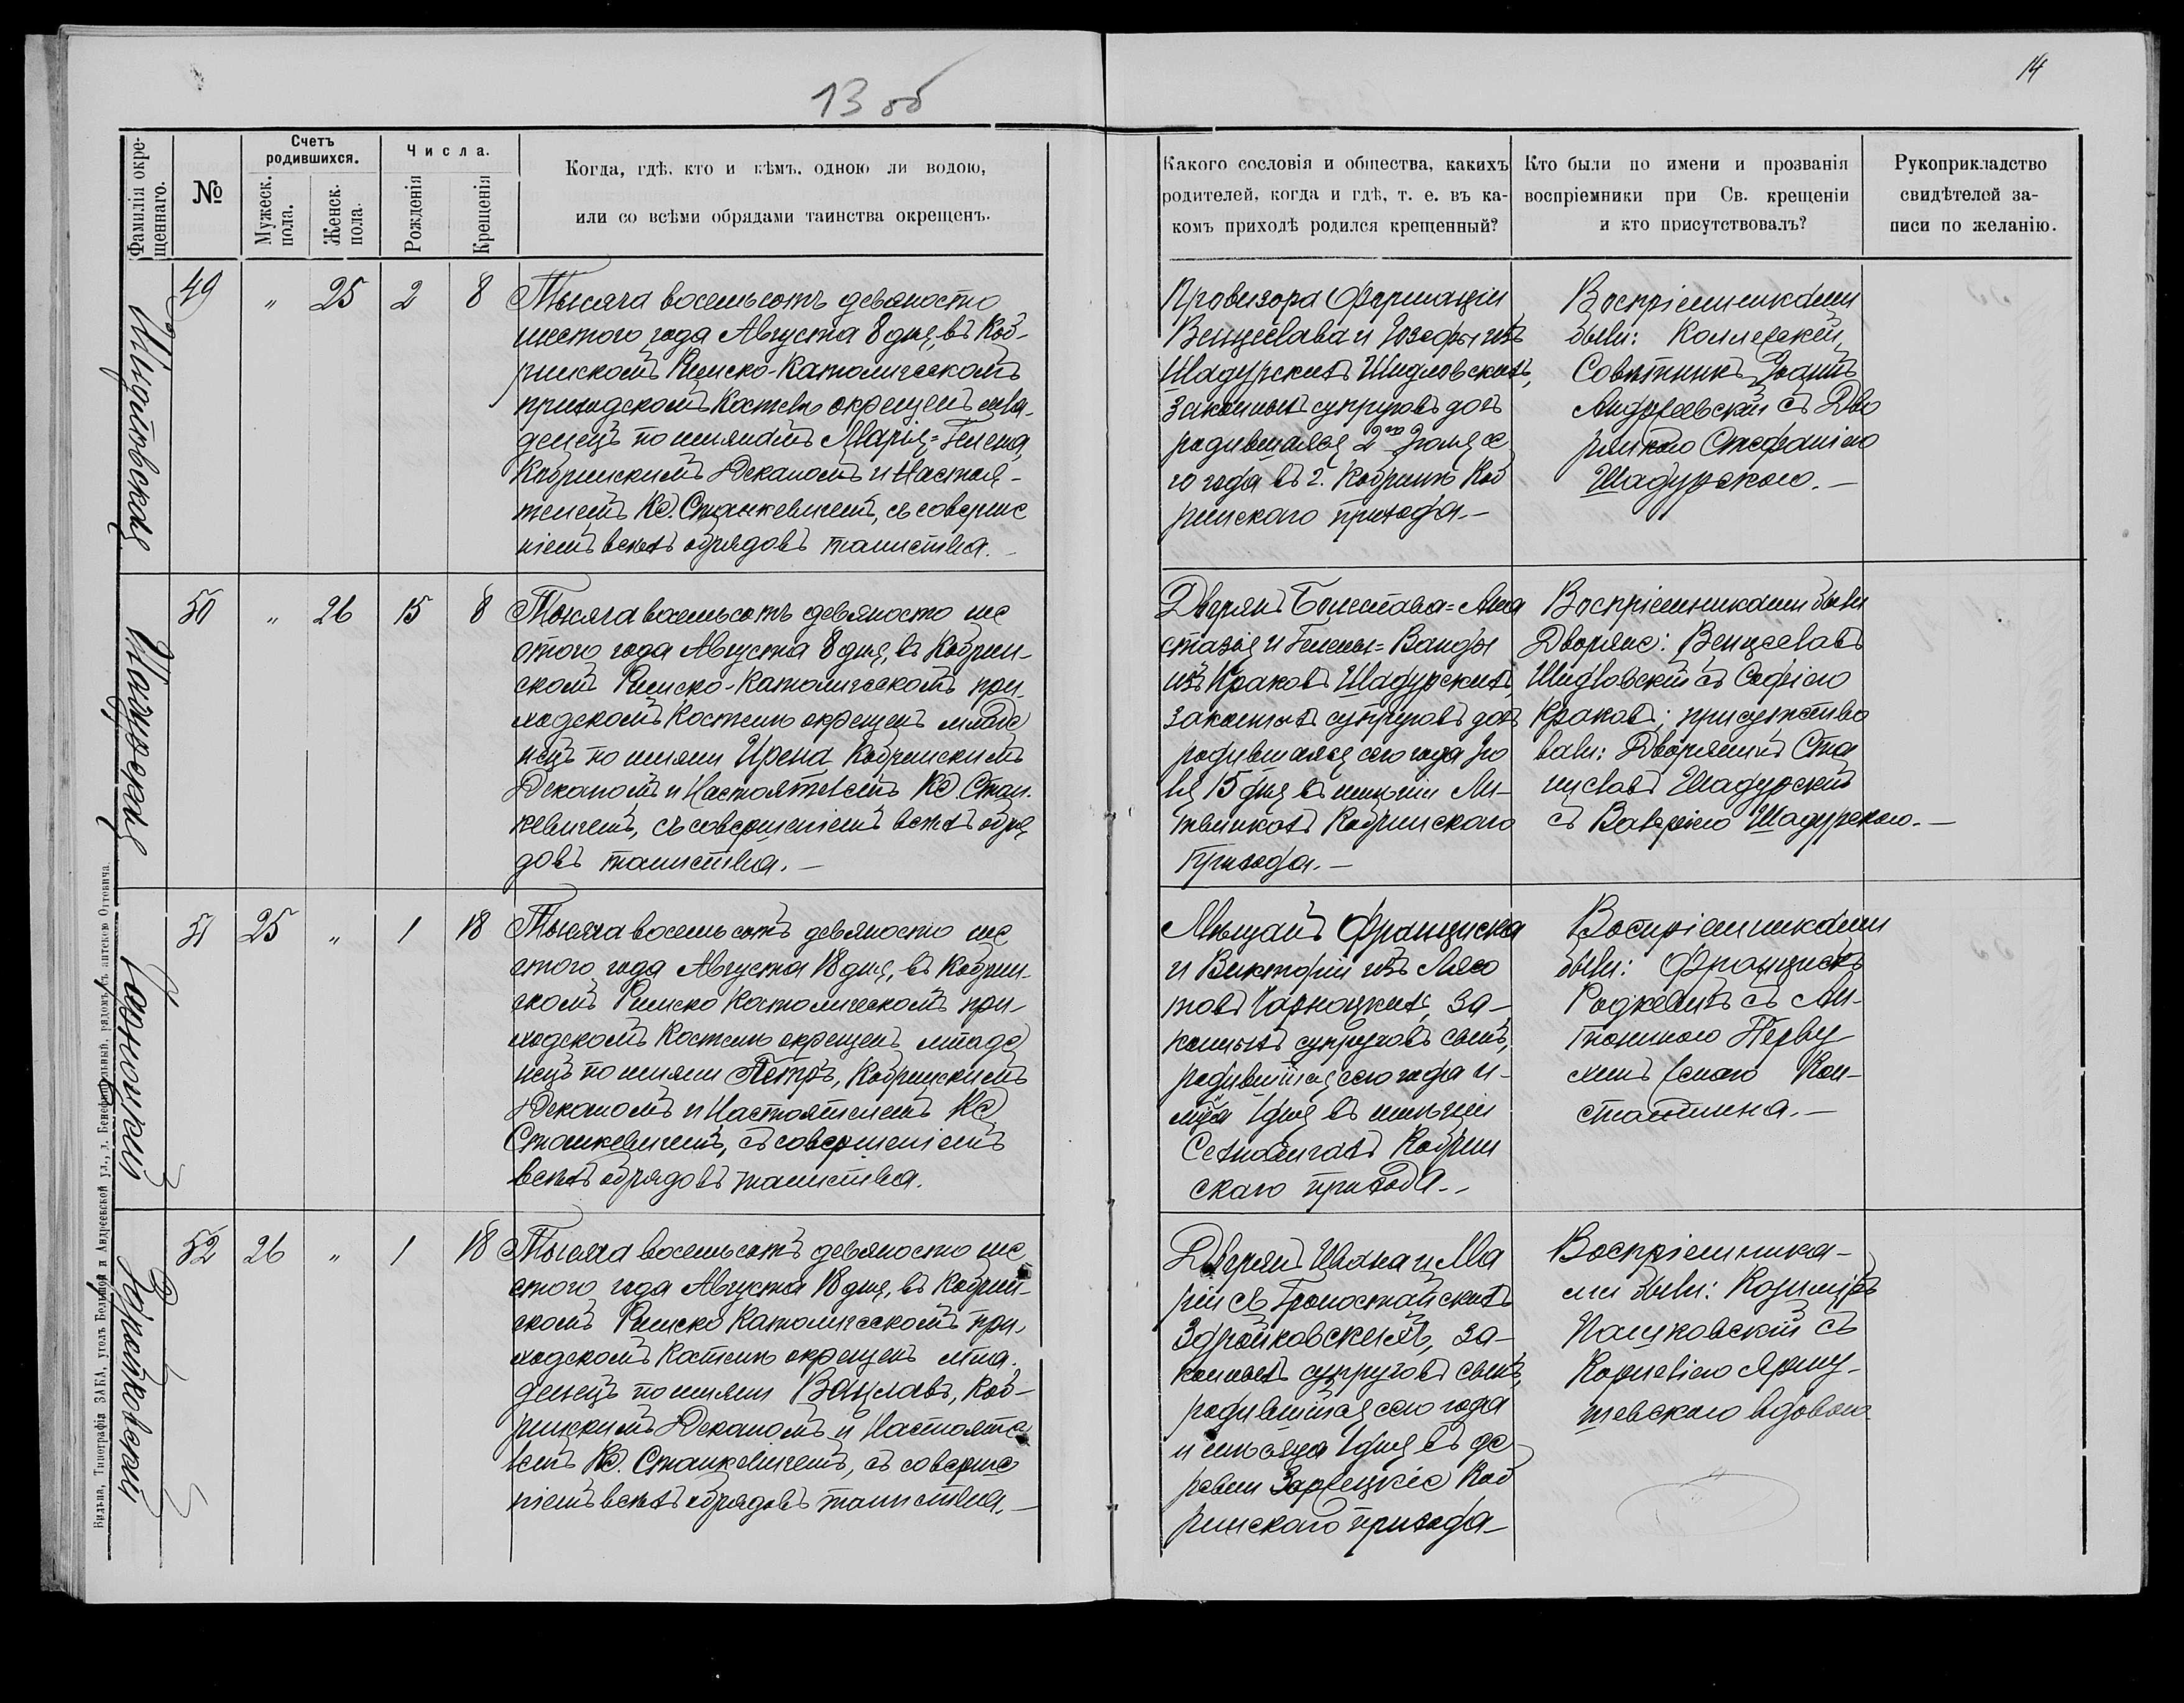 13 об
14
Фамилія окре-
щеннаго.
№
Счетъ
родившихся.
Мужеск.
пола.
Женск.
пола.
Числа.
Рожденія
Крещенія
Когда, гдѣ, кто и кѣмъ, одною ли водою,
или со всѣми обрядами таинства окрещенъ.
Какого сословія и общества, какихъ
родителей, когда и гдѣ, т. е. въ ка-
комъ приходѣ родился крещенный?
Кто были по имени и прозванія
воспріемники при Св. крещеніи
и кто присутствовалъ?
Рукоприкладство
свидѣтелей за-
писи по желанію.
Шидловская
49 " 25 2 8
Тысяча восемьсотъ девяносто
шестого года Августа 8 дня, въ Коб-
ринскомъ Римско-Католическомъ
приходскомъ Костелѣ окрещенъ мла-
денецъ по именамъ Марія=Гелена,
Кобринскимъ Деканомъ и Настоя-
телемъ Кс. Станкевичемъ, съ соверше
ніемъ всѣхъ обрядовъ таинства.
Провизора Фармаціи
Венцеслава и Іозефы изъ
Шадурскихъ Шидловскихъ,
законныхъ супруговъ дочь
родившаяся 2го Іюня се
го года въ г. Кобринѣ Коб
ринского прихода.—
Воспріемниками
были: Коллежскій
Совѣтникъ Іоаннъ
Андржеевскій съ Дво
рянкою Стефаніею
Шадурскою.—
Шадурская
50 " 26 15 8
Тысяча восемьсотъ девяносто ше
стого года Августа 8 дня, въ Кобрин-
скомъ Римско-Католическомъ при-
ходскомъ Костелѣ окрещенъ младе
нецъ по имени Ирена Кобринскимъ
Деканомъ и Настоятелемъ Кс Стан-
кевичемъ, съ совершеніемъ всѣхъ обря
довъ таинства.—
Дворянъ Болеслава=Ана
стазія и Гелены=Ванды
изъ Краковъ Шадурскихъ
законныхъ супруговъ дочь
родившаяся сего года Ію
ля 15 дня въ имѣніи Ли-
твинкахъ Кобринского
Прихода.—
Воспріемниками были
Дворяне: Венцеславъ
Шидловскій съ Софіею
Краковъ; присутство
вали: Дворянинъ Ста
ниславъ Шадурскій
съ Валеріею Шадурскою.—
Чарноцкій
51 25 " 1 18
Тысяча восемьсотъ девяносто ше
стого года Августа 18 дня, въ Кобрин-
скомъ Римско Католическомъ при-
ходскомъ Костелѣ окрещенъ младе
нецъ по имени Петръ, Кобринскимъ
Деканомъ и Настоятелемъ Кс
Станкевичемъ, съ совершеніемъ
всѣхъ обрядовъ таинства.
Мѣщанъ Франциска
и Викторіи изъ
Чарноцкихъ, за-
конныхъ супруговъ сынъ,
родившійся сего года и
1 дня въ имѣніи
Кобрин
скаго прихода.—
Воспріемниками
были: Францискъ
съ Ан-
тониною
женою Кон-
стантина.—
Здройковскій
52 26 " 1 18
Тысяча восемьсотъ девяносто ше
стого года Августа 18 дня, въ Кобрин-
скомъ Римско Католическомъ при-
ходскомъ Костелѣ окрещенъ мла-
денецъ по имени Вацлавъ, Коб-
ринскимъ Деканомъ и Настояте
лемъ Кс. Станкевичемъ, съ соверше
ніемъ всѣхъ обрядовъ таинства.—
Дворянъ Ивана и Ма
ріи съ
Здройковскихъ, за-
конныхъ супруговъ сынъ,
родившійся сего года
и мѣсяца 1 дня въ де
ревни Зарѣцкіе Коб
ринскаго прихода—
Воспріемника-
ми были: Казиміръ
Пашковскій съ
Корнеліею Ярму-
шевскою вдовою
Вильна, Типографія ЗАКА, уголъ Большой и Андреевской ул., д. Бенефиціальный, рядомъ съ аптекою Оттовича.